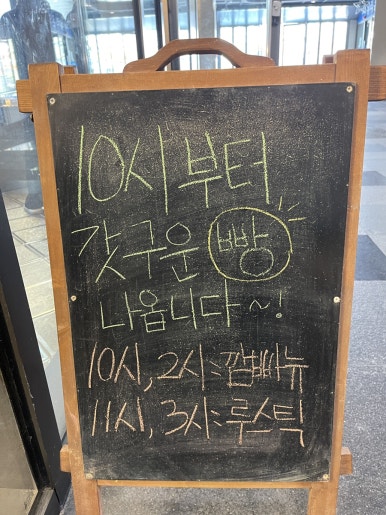 10시부터
갓구운 빵
나옵니다~!
10시, 2시: 깜빠뉴
11시, 3시: 루스틱